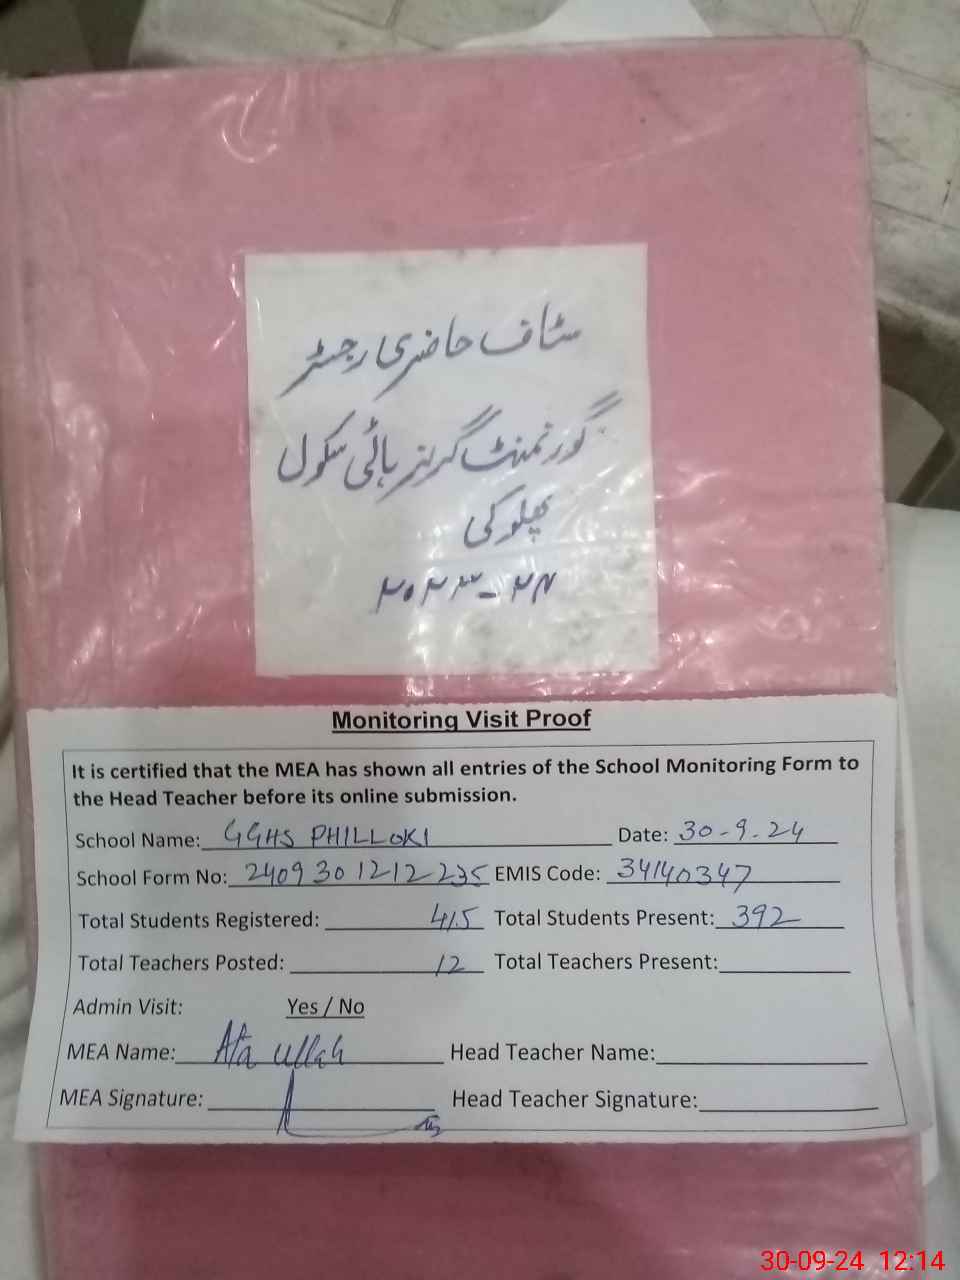 سٹاف حاضری رجسٹر
گورنمنٹ گرلز ہائی سکول
پھلوکی
۲۰۲۳-۲۴
Monitoring Visit Proof
It is certified that the MEA has shown all entries of the School Monitoring Form to
the Head Teacher before its online submission.
School Name: GGHS PHILLOKI Date: 30-9-24
School Form No: 240930 1212235 EMIS Code: 34140347
Total Students Registered: 415 Total Students Present: 392
Total Teachers Posted: 12 Total Teachers Present:
Admin Visit: Yes / No
MEA Name: Ata Ullah Head Teacher Name:
MEA Signature: Head Teacher Signature:
30-09-24 12:14